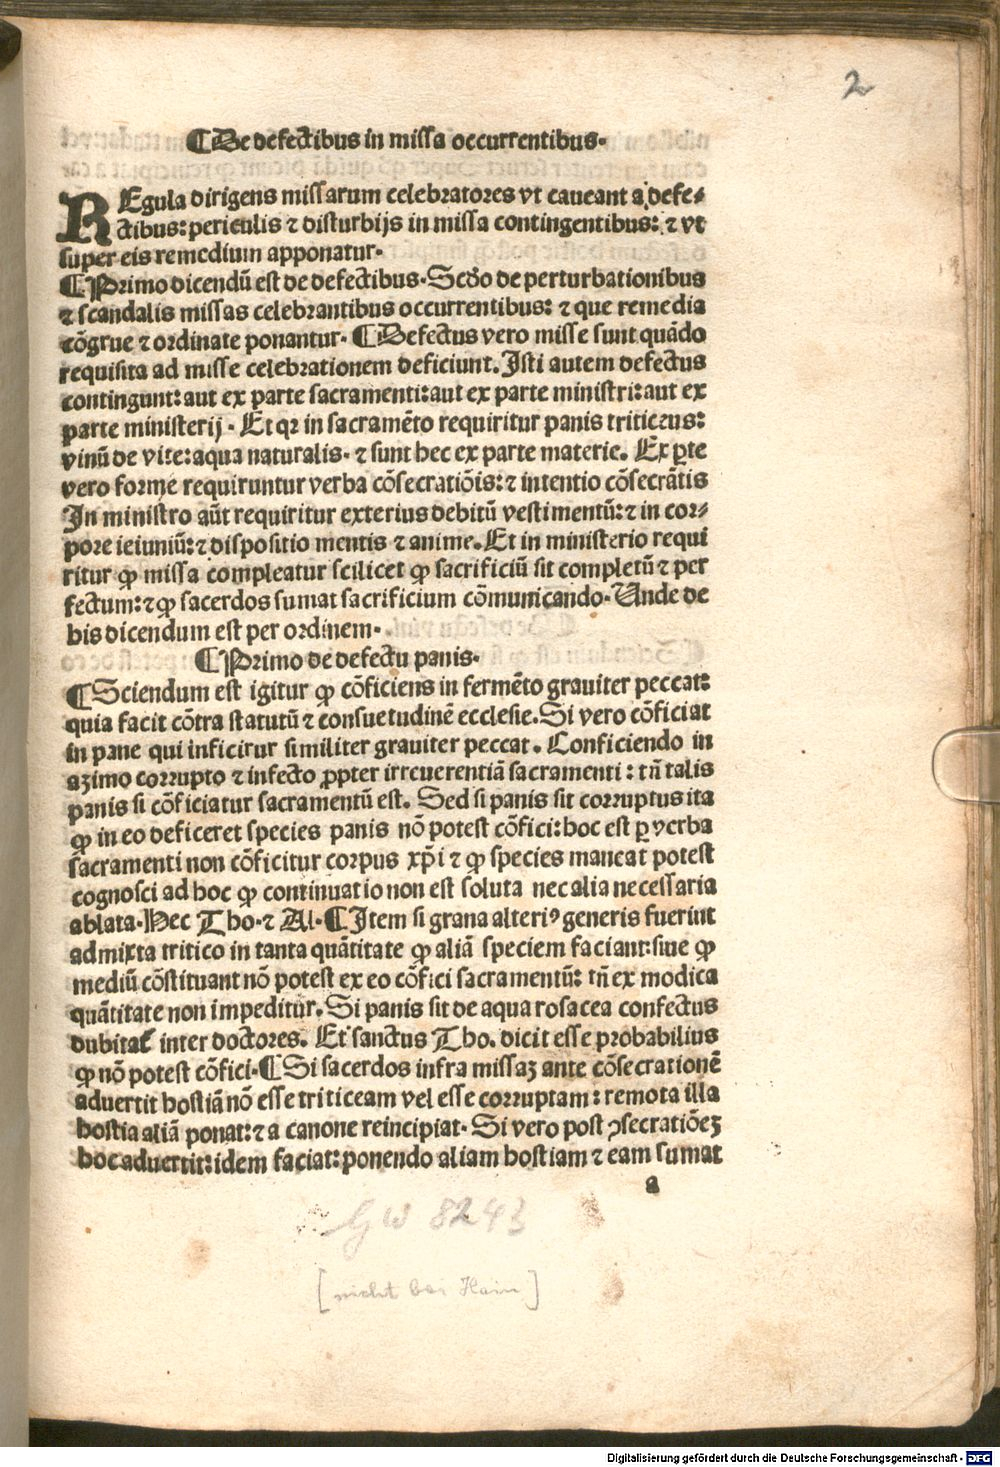 2
¶ De defectibus in missa occurrentibus.
REgula dirigens missarum celebratores vt caueant a defe-
ctibus: periculis ⁊ disturbijs in missa contingentibus: ⁊ vt
super eis remedium apponatur.
¶ Primo dicendū est de defectibus. Scďo de perturbationibus
⁊ scandalis missas celebrantibus occurrentibus: ⁊ que remedia
cōgrue ⁊ ordinate ponantur. ¶ Defectus vero misse sunt quādo
requisita ad misse celebrationem deficiunt. Isti autem defectus
contingunt: aut ex parte sacramenti: aut ex parte ministri: aut ex
parte ministerij. Et qꝛ in sacramēto requiritur panis triticeus:
vinū de vite: aqua naturalis. ⁊ sunt hec ex parte materie. Ex ꝑte
vero forme requiruntur verba cōsecratiōis: ⁊ intentio cōsecrātis
In ministro aūt requiritur exterius debitū vestimentū: ⁊ in cor-
pore ieiuniū: ⁊ dispositio mentis ⁊ anime. Et in ministerio requi
ritur ꝙ missa compleatur scilicet ꝙ sacrificiū sit completū ⁊ per
fectum: ⁊ ꝙ sacerdos sumat sacrificium cōmunicando. Unde de
his dicendum est per ordinem.
¶ Primo de defectu panis.
¶ Sciendum est igitur ꝙ cōficiens in fermēto grauiter peccat:
quia facit cōtra statutū ⁊ consuetudinē ecclesie. Si vero cōficiat
in pane qui inficitur similiter grauiter peccat. Conficiendo in
azimo corrupto ⁊ infecto ꝓpter irreuerentiā sacramenti: tñ talis
panis si cōficiatur sacramentū est. Sed si panis sit corruptus ita
ꝙ in eo deficeret species panis nō potest cōfici: hoc est ꝑ verba
sacramenti non cōficitur corpus xp̄i ⁊ ꝙ species maneat potest
cognosci ad hoc ꝙ continuatio non est soluta nec alia necessaria
ablata. Hec Tho. ⁊ Al. ¶ Item si grana alteriꝰ generis fuerint
admixta tritico in tanta quātitate ꝙ aliā speciem faciant: siue ꝙ
mediū cōstituant nō potest ex eo cōfici sacramentū: tñ ex modica
quātitate non impeditur. Si panis sit de aqua rosacea confectus
dubitať inter doctores. Et sanctus Tho. dicit esse probabilius
ꝙ nō potest cōfici. ¶ Si sacerdos infra missaꝫ ante cōsecrationē
aduertit hostiā nō esse triticeam vel esse corruptam: remota illa
hostia aliā ponat: ⁊ a canone reincipiat. Si vero post ꝯsecratiōeꝫ
hoc aduertit: idem faciat: ponendo aliam hostiam ⁊ eam sumat
a
GW 8243
[nicht bei Hain]
Digitalisierung gefördert durch die Deutsche Forschungsgemeinschaft - DFG